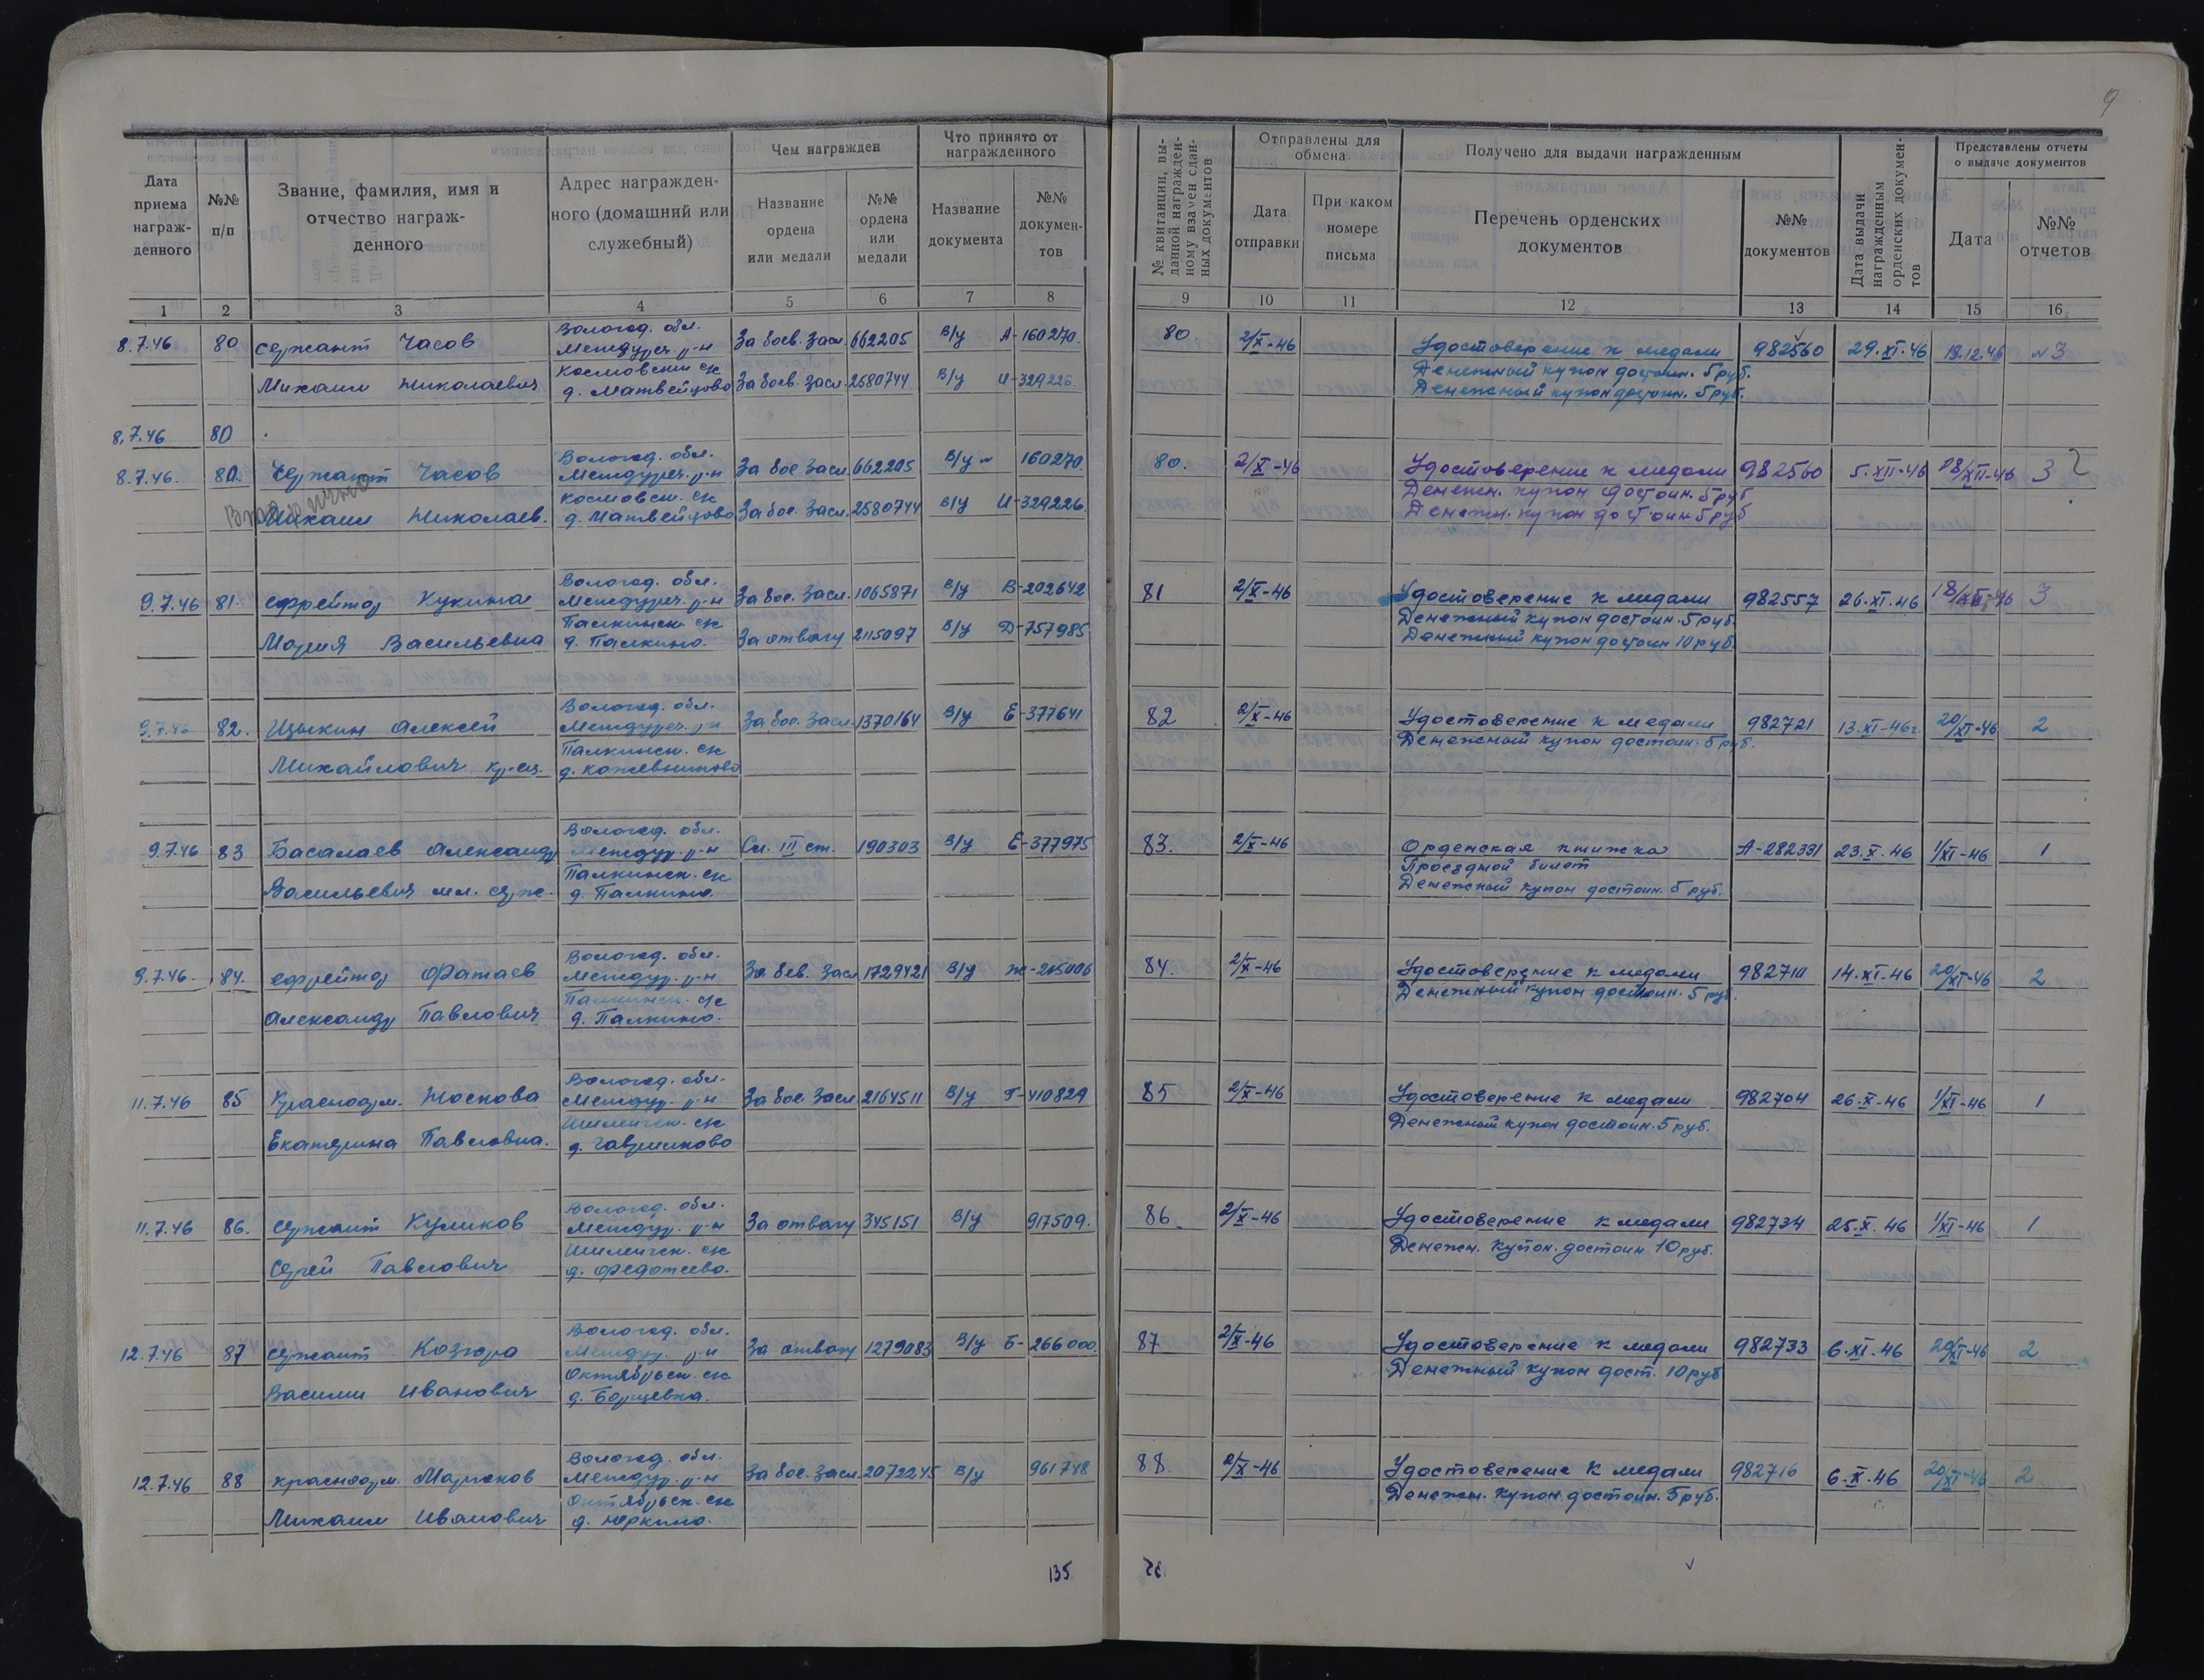 9
Дата приема награж-денного
№№ п/п
Звание, фамилия, имя и отчество награж-денного
Адрес награжден-ного (домашний или служебный)
Чем награжден
Название ордена или медали
№№ ордена или медали
Что принято от награжденного
Название документа
№№ докумен-тов
№ квитанции, вы-данной награжден-ному взамен сдан-ных документов
Отправлены для обмена
Дата отправки
При каком номере письма
Получено для выдачи награжденным
Перечень орденских документов
№№ документов
Дата выдачи награжденным орденских докумен-тов
Представлены отчеты о выдаче документов
Дата
№№ отчетов
1 2 3 4 5 6 7 8 9 10 11 12 13 14 15 16
Вологод. обл.
8.7.46 80 сержант Часов Междуреч. р-н За боев. Засл. 662205 В/у А-160270. 80. 2/X-46 Удостоверение к медали 982560 29.XI.46 18.12.46 №3
Космовский с/с Денежный купон достоин. 5 руб.
Михаил Николаевич д. Матвейцово За боев. Засл. 2580744 В/у И-329226. Денежный купон достоин. 5 руб.
8.7.46 80
Вологод. обл.
8.7.46. 80. Сержант Часов Междуреч. р-н За бое. Засл. 662205 В/у 160270. 80. 2/X-46 Удостоверение к медали 982560 5.XII-46 18/XII-46 3 ?
Космовск. с/с Денежн. купон достоин. 5 руб
Михаил Николаев. д. Матвейцово За бое. Засл. 2580744 В/у И-329226. Денежн. купон достоин 5 руб
Вологод. обл.
9.7.46 81. ефрейтор Кукина Междуреч. р-н За бое. Засл. 1065871 В/у В-202642 81 2/X-46 Удостоверение к медали 982557 26.XI.46 18/XII-46 3
Палкинск. с/с Денежный купон достоин. 5 руб.
Мария Васильевна д. Палкино. За отвагу 2115097 В/у Д-757985 Денежный купон достоин 10 руб.
Вологод. обл.
9.7.46 82. Цыкин Алексей Междуреч. р-н За бое. Засл. 1370164 В/у Е-377641 82 2/X-46 Удостоверение к медали 982721 13.XI-46г. 20/XI-46 2
Палкинск. с/с Денежный купон достоин. 5 руб.
Михайлович кр-ец. д. Кожевниково
Вологод. обл.
9.7.46 83 Басалаев Александр Междур. р-н Сл. III ст. 190303 В/у Е-377975 83. 2/X-46 Орденская книжка А-282331 23.X.46 1/XI-46 1
Палкинск. с/с Проездной билет
Васильевич мл. серж. д. Палкино. Денежный купон достоин. 5 руб.
Вологод. обл.
9.7.46. 84. ефрейтор Фатаев Междур. р-н За бев. Засл 1729421 В/у Ж-205006 84. 2/X-46 Удостоверение к медали 982711 14.XI.46 20/XI-46 2
Палкинск. с/с Денежный купон достоин. 5 руб.
Александр Павлович д. Палкино.
Вологод. обл.
11.7.46 85 Красноарм. Носкова Междур. р-н За бое. Засл 2164511 В/у Г-410829 85 2/X-46 Удостоверение к медали 982704 26.X.46 1/XI-46 1
Шиленгск. с/с Денежный купон достоин. 5 руб.
Екатерина Павловна. д. Гаврилково
Вологод. обл.
11.7.46 86. сержант Куликов Междур. р-н За отвагу 345151 В/у 917509. 86. 2/X-46 Удостоверение к медали 982734 25.X.46 1/XI-46 1
Шиленгск. с/с Денежн. Купон. достоин 10 руб.
Сергей Павлович д. Федотеево.
Вологод. обл.
12.7.46 87 сержант Козыро Междур. р-н За отвагу 1279083 В/у Б-266000 87 2/X-46 Удостоверение к медали 982733 6.XI.46 20/XI-46 2
Октябрьск. с/с Денежный купон дост. 10 руб
Василий Иванович д. Борщевка.
Вологод. обл.
12.7.46 88 красноарм. Марков Междур. р-н За бое. Засл. 2072245 В/у 961748 88. 2/X-46 Удостоверение к медали 982716 6.X.46 20/XI-46 2
Октябрьск. с/с Денежн. Купон достоин. 5 руб.
Михаил Иванович д. Юркино.
135